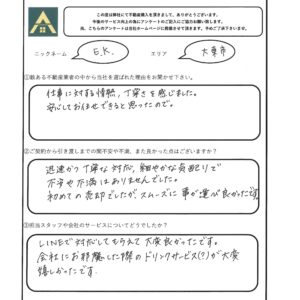 この度は弊社にて不動産購入を頂きまして、ありがとうございます。
今後のサービス向上の為にアンケートのご記入にご協力お願い致します。
尚、こちらのアンケートは当社ホームページに掲載させて頂きます。予めご了承下さいませ。
ニックネーム E.K. エリア 大東市
①数ある不動産業者の中から当社を選ばれた理由をお聞かせ下さい。
仕事に対する情熱、丁寧さを感じました。
安心しておまかせできると思ったので。
②ご契約から引き渡しまでの間不安や不満、また良かった点はございますか？
迅速かつ丁寧な対応、細やかな気配りで
不安や不満はありませんでした。
初めての売却でしたが、スムーズに事が運び良かったです
③担当スタッフや会社のサービスについてどうでしたか？
LINEで対応してもらえて大変良かったです。
会社にお邪魔した際のドリンクサービス(?)が大変
嬉しかったです。